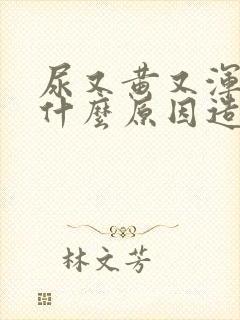 尿又黄又渾
什麼原因造
林文芳